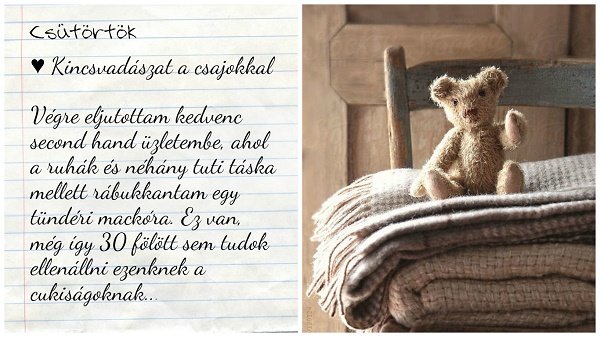 Csütörtök
♥ Kincsvadászat a csajokkal
Végre eljutottam kedvenc
second hand üzletembe, ahol
a ruhák és néhány tuti táska
mellett rábukkantam egy
tündéri mackóra. Ez van,
még így 30 fölött sem tudok
ellenállni ezenknek a
cukiságoknak...